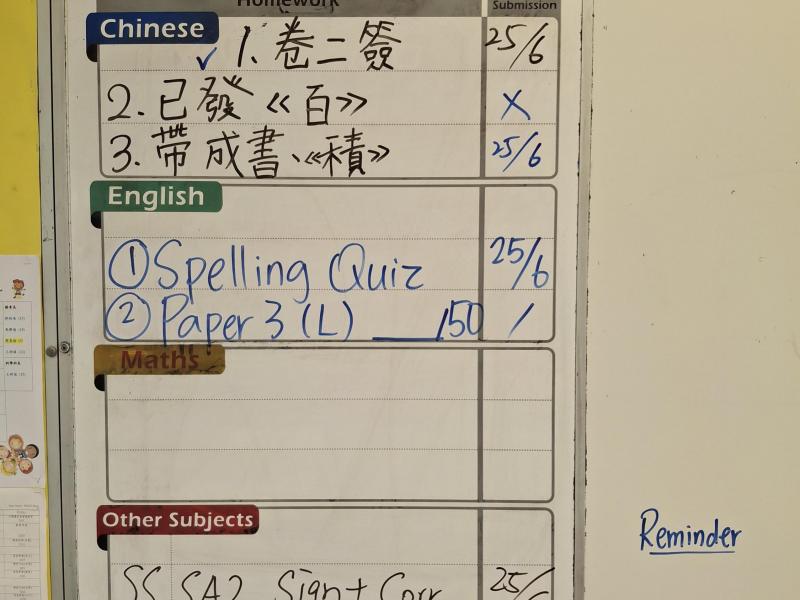 Homework
Submission
Chinese
✓ 1. 卷二簽 25/6
2. 已發《百》 X
3. 帶成書、《積》 25/6
English
① Spelling Quiz 25/6
② Paper 3 (L) ___/50 /
Maths
Other Subjects
SS SA2 Sign + Corr 25/6
Reminder